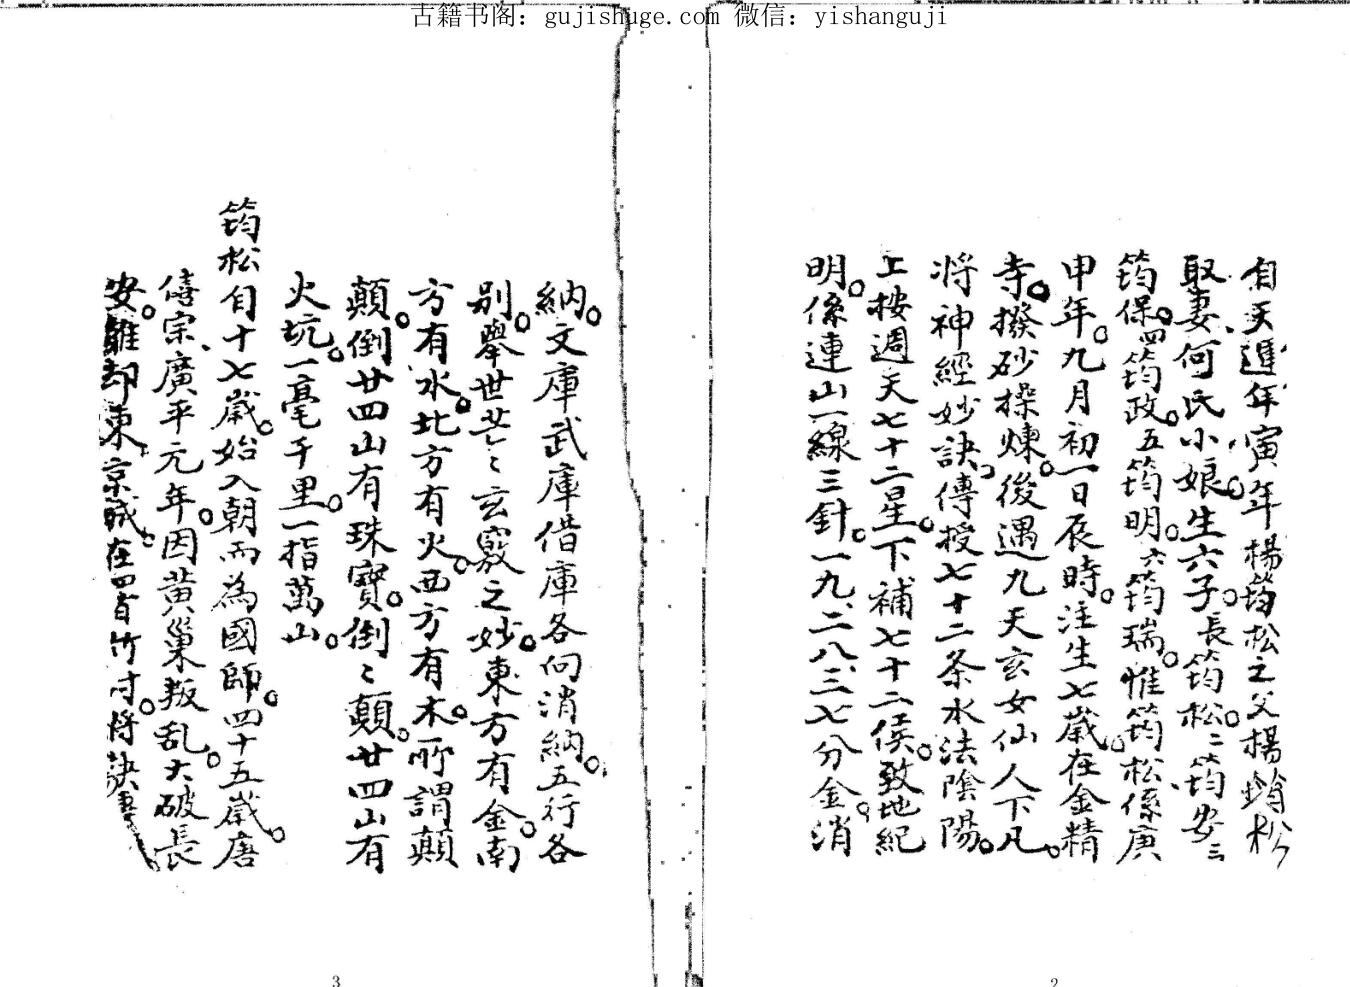 古籍书阁：gujishuge.com 微信：yishanguji
年寅年楊筠松之父楊筠松
取妻何氏小娘。生六子。長筠松。二筠安三
筠保。四筠政。五筠明。六筠瑞。惟筠松係庚
申年。九月初一日辰時。注生七歲。在金精
寺。撥砂操煉。後遇九天玄女仙人下凡。
將神經妙訣。傳授七十二条水法陰陽。
上按週天七十二星。下補七十二侯。致地紀
明。係連山一線三針。一九、二八、三七分金。消
2
納。文庫武庫借庫各向消納。五行各
別。舉世茫〻玄竅之妙。東方有金。南
方有水。北方有火。西方有木。所謂顛
顛。倒廿四山有珠寶。倒〻顛。廿四山有
火坑。一毫千里。一指萬山。
筠松自十七歲。始入朝而為國師。四十五歲。唐
僖宗、廣平元年。因黄巢叛乱。大破長
安。東京城。在
3